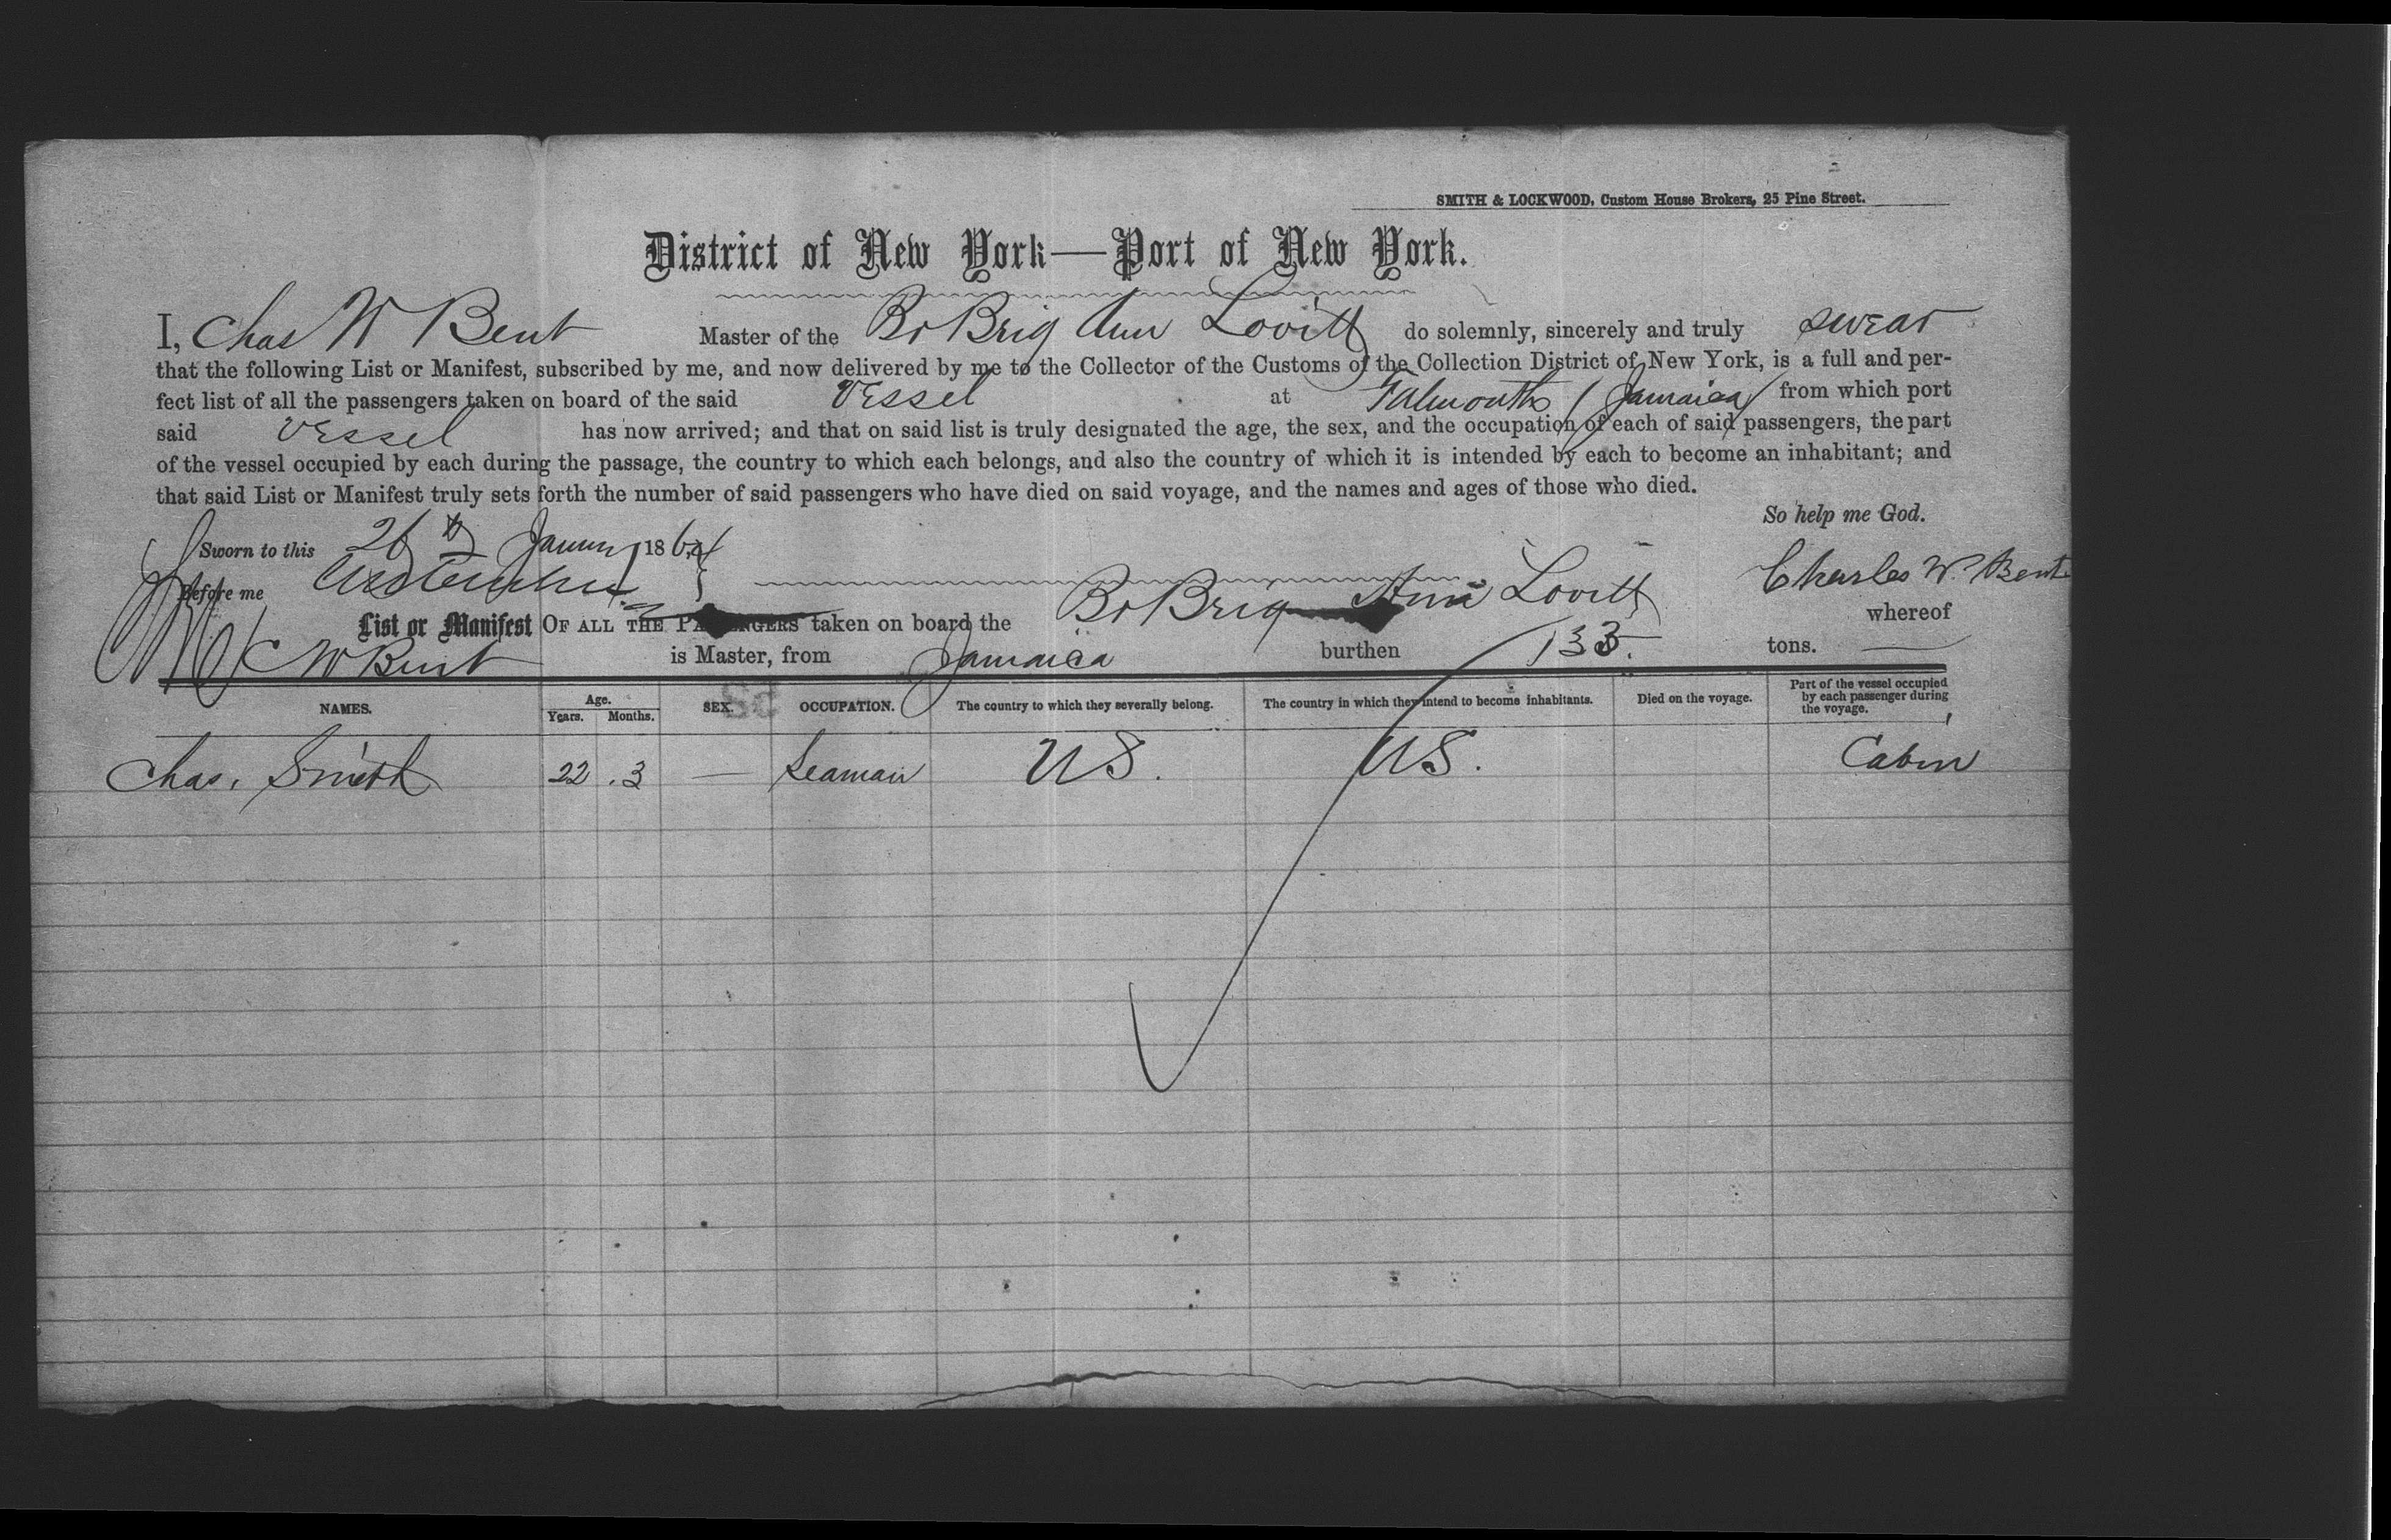 SMITH & LOCKWOOD, Custom House Brokers, 25 Pine Street.
District of New York—Port of New York.
I, Chas W Bent Master of the Br Brig Ann Lovitt do solemnly, sincerely and truly swear
that the following List or Manifest, subscribed by me, and now delivered by me to the Collector of the Customs of the Collection District of New York, is a full and per-
fect list of all the passengers taken on board of the said Vessel at Falmouth (Jamaica) from which port
said Vessel has now arrived; and that on said list is truly designated the age, the sex, and the occupation of each of said passengers, the part
of the vessel occupied by each during the passage, the country to which each belongs, and also the country of which it is intended by each to become an inhabitant; and
that said List or Manifest truly sets forth the number of said passengers who have died on said voyage, and the names and ages of those who died.
So help me God.
Sworn to this 26th January 1864
Before me Charles W. Bent
List or Manifest OF ALL THE PASSENGERS taken on board the Br Brig Ann Lovitt whereof
C W Bent is Master, from Jamaica burthen 133. tons.
NAMES. Age. Years. Months. SEX. OCCUPATION. The country to which they severally belong. The country in which they intend to become inhabitants. Died on the voyage. Part of the vessel occupied by each passenger during the voyage.
Chas. Smith 22 . 3 — Seaman US. US. Cabin